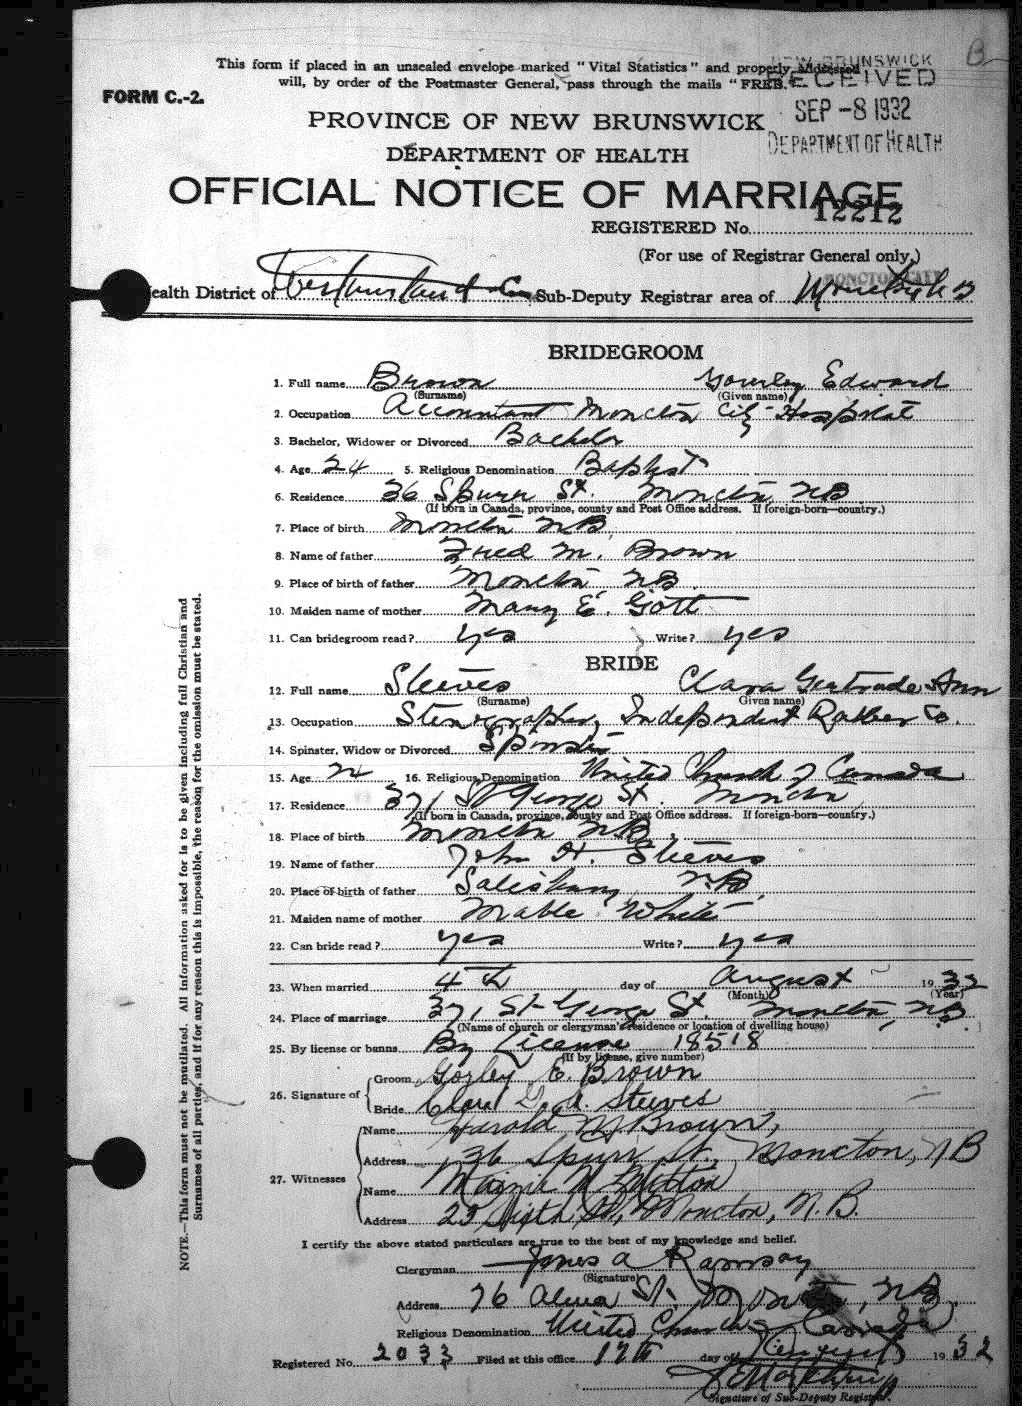 This form if placed in an unsealed envelope marked "Vital Statistics" and properly addressed
will, by order of the Postmaster General, pass through the mails "FREE."
B
NEW BRUNSWICK
RECEIVED
SEP -8 1932
DEPARTMENT OF HEALTH
FORM C.-2.
PROVINCE OF NEW BRUNSWICK
DEPARTMENT OF HEALTH
OFFICIAL NOTICE OF MARRIAGE
REGISTERED No. 12212
(For use of Registrar General only,)
MONCTON CITY
Health District of Westmorland Co. Sub-Deputy Registrar area of Moncton N B
BRIDEGROOM
1. Full name Brown Gourley Edward
(Surname) (Given name)
2. Occupation Accountant Moncton City Hospital
3. Bachelor, Widower or Divorced Bachelor
4. Age 24 5. Religious Denomination Baptist
6. Residence 36 Spurr St. Moncton NB
(If born in Canada, province, county and Post Office address. If foreign-born—country.)
7. Place of birth Moncton NB
8. Name of father Fred M. Brown
9. Place of birth of father Moncton NB
10. Maiden name of mother Mary E. Gott
11. Can bridegroom read? yes Write? yes
BRIDE
12. Full name Steeves Clara Gertrude Ann
(Surname) (Given name)
13. Occupation Stenographer, Independent Rubber Co.
14. Spinster, Widow or Divorced Spinster
15. Age 24 16. Religious Denomination United Church of Canada
17. Residence 371 St George St. Moncton
(If born in Canada, province, county and Post Office address. If foreign-born—country.)
18. Place of birth Moncton NB.
19. Name of father John H. Steeves
20. Place of birth of father Salisbury N.B.
21. Maiden name of mother Mable White
22. Can bride read? yes Write? yes
23. When married 4th day of August 1932
(Month) (Year)
24. Place of marriage 371 St George St. Moncton, NB.
(Name of church or clergyman's residence or location of dwelling house)
25. By license or banns By License 18518
(If by license, give number)
26. Signature of Groom Gorley E. Brown
Bride Clara G. A. Steeves
27. Witnesses Name Harold M Brown,
Address 36 Spurr St. Moncton, N B
Name
Address 23 Sixth St, Moncton, N. B.
I certify the above stated particulars are true to the best of my knowledge and belief.
Clergyman James A Ramsay
(Signature)
Address 76 Alma St. Moncton, NB.
Religious Denomination United Church of Canada
Registered No. 2033 Filed at this office 17th day of August 1932
Signature of Sub-Deputy Registrar.
NOTE.—This form must not be mutilated. All information asked for is to be given including full Christian and
Surnames of all parties, and if for any reason this is impossible, the reason for the omission must be stated.